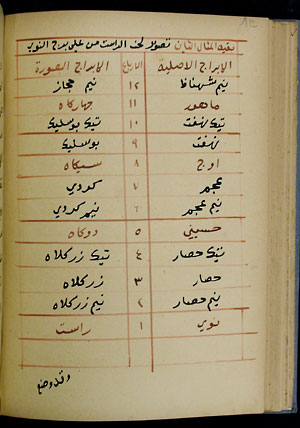 بقية المثال الثاني تصوير لحن الراست من على برج النوى
الابراج الاصلية الارباع الابراج المصورة
نيم شهناظ ١٢ نيم حجاز
ماهور ١١ جهاركاه
تيك نهفت ١٠ تيك بوسليك
نهفت ٩ بوسليك
اوج ٨ سيكاه
عجم ٧ كردي
نيم عجم ٦ نيم كردي
حسيني ٥ دوكاه
تيك حصار ٤ تيك زركلاه
حصار ٣ زركلاه
نيم حصار ٢ نيم زركلاه
نوي ١ راست